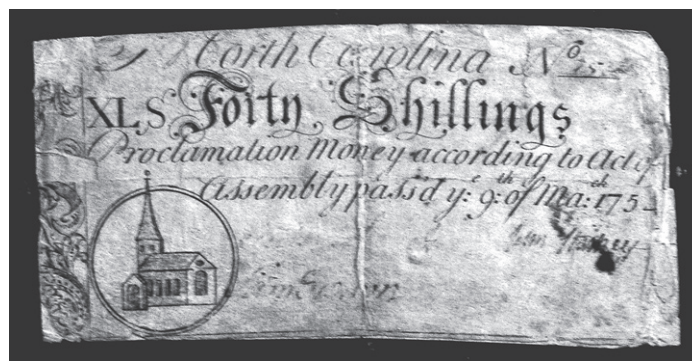 North Carolina No
XLS Forty Shillings
Proclamation Money according to Act of
Assembly pass'd ye: 9:th of Ma:ch 175